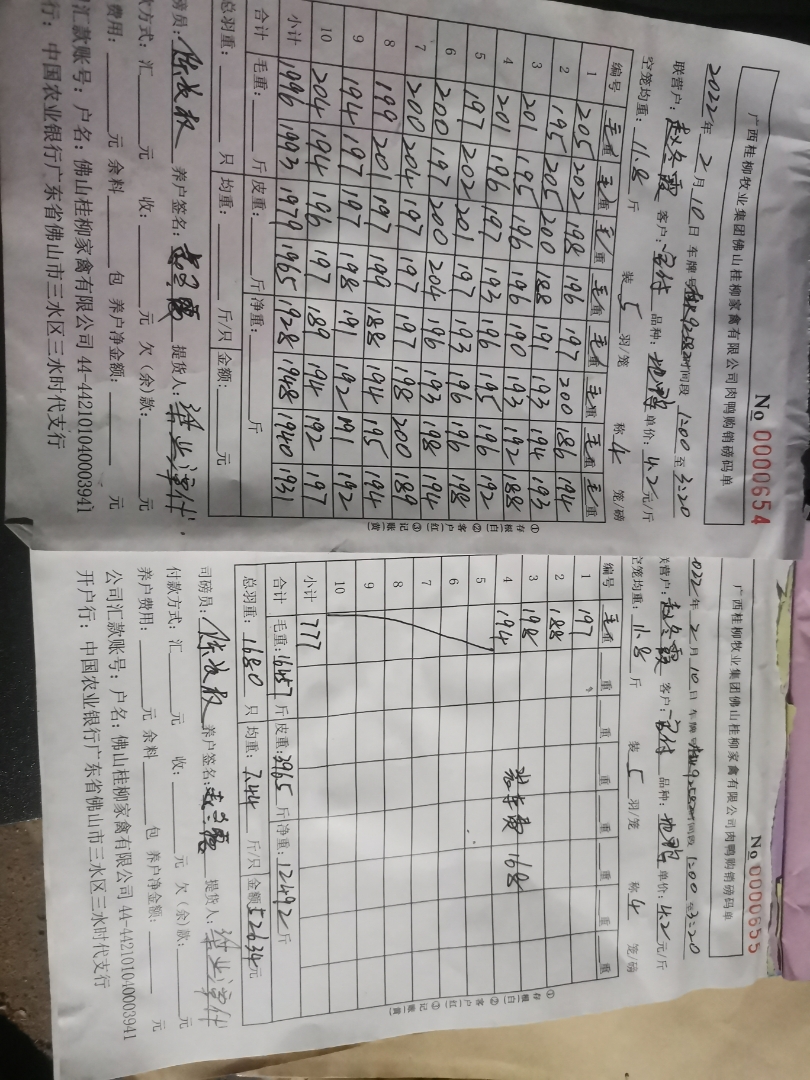 广西桂柳牧业集团佛山桂柳家禽有限公司肉鸭购销磅码单
№ 0000654
2022年2月10日 车牌号 时间段 1:00至3:20
联营户: 客户: 品种: 单价:4.2元/斤
空笼均重:11.8斤 装5羽/笼 称4笼/磅
编号 毛重 毛重 毛重 毛重 毛重 毛重 毛重 毛重
1 205 202 198 196 197 200 186 194
2 195 205 200 188 191 193 194 193
3 201 195 196 196 190 193 192 188
4 201 196 197 193 196 195 196 192
5 197 202 201 197 193 196 196 198
6 200 197 200 204 196 193 198 194
7 200 204 197 197 197 198 200 189
8 199 201 197 190 188 194 195 194
9 194 197 197 198 191 192 191 192
10 204 194 196 197 189 194 192 197
小计 1996 1993 1979 1965 1928 1948 1940 1931
合计 毛重:斤 皮重:斤 净重:斤
总羽重:只 均重:斤/只 金额:元
①存根(白) ②客户(红) ③记账(黄)
磅员: 养户签名: 提货人:
方式:汇元 收:元 欠(余)款:元
费用:元 余料包 养户净金额:元
汇款账号:户名:佛山桂柳家禽有限公司 44-442101040003941
行:中国农业银行广东省佛山市三水区三水时代支行
广西桂柳牧业集团佛山桂柳家禽有限公司肉鸭购销磅码单
№ 0000655
2022年2月10日 车牌号 时间段 1:00至3:20
联营户: 客户: 品种: 单价:4.2元/斤
空笼均重:11.8斤 装5羽/笼 称4笼/磅
编号 毛重 重 重 重 重 重 重 重
1 197
2 188
3 198
4 194 装车费 168
5
6
7
8
9
10
小计 777
合计 毛重:16457斤 皮重:3965斤 净重:12492斤
总羽重:1680只 均重:7.44斤/只 金额:52634元
①存根(白) ②客户(红) ③记账(黄)
司磅员: 养户签名: 提货人:
付款方式:汇元 收:元 欠(余)款:元
养户费用:元 余料包 养户净金额:元
公司汇款账号:户名:佛山桂柳家禽有限公司 44-442101040003941
开户行:中国农业银行广东省佛山市三水区三水时代支行